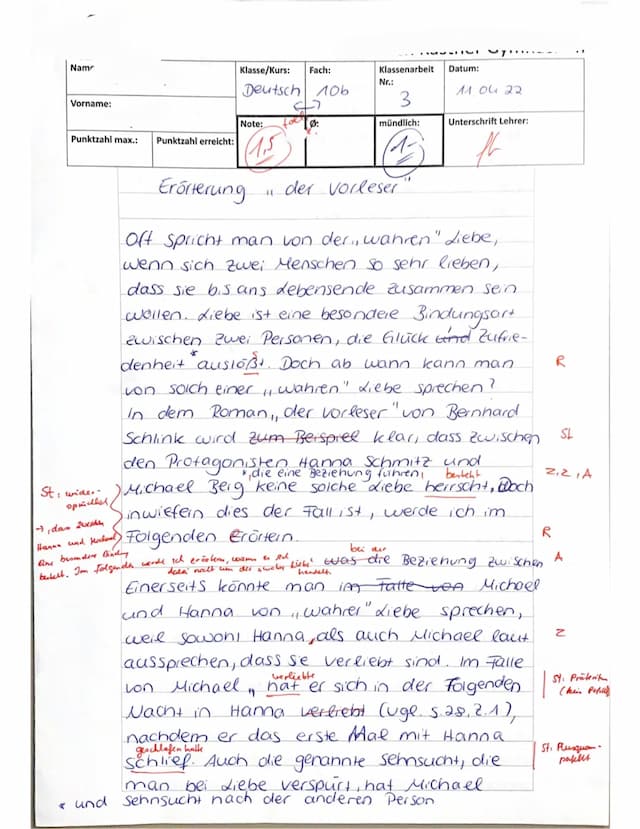 Name
Klasse/Kurs:
Fach:
Klassenarbeit Nr.:
Datum:
Deutsch
10b
3
11 04 22
Vorname:
Note:
Ø:
mündlich:
Unterschrift Lehrer:
Punktzahl max.:
Punktzahl erreicht:
1,5
1-
Erörterung „der Vorleser"
Oft spricht man von der „wahren" Liebe,
wenn sich zwei Menschen so sehr lieben,
dass sie bis ans Lebensende zusammen sein
wollen. Liebe ist eine besondere Bindungsart
zwischen zwei Personen, die Glück und Zufrie-
denheit * auslößt. Doch ab wann kann man R
s
von solch einer „wahren" Liebe sprechen?
In dem Roman „der Vorleser" von Bernhard
Schlink wird zum Beispiel klar, dass zwischen St
den Protagonisten Hanna Schmitz und
*, die eine Beziehung führen, besteht Z, Z, A
Michael Berg keine solche Liebe herrscht, Doch
St: wider-
sprüchlich
inwiefern dies der Fall ist, werde ich im
→, dass zwischen
Hanna und Michael
Folgenden Erörtern. R
eine besondere Bindung
besteht. Im Folgenden werde ich erörtern, wann es sich
bei der
was die Beziehung zwischen A
handelt.
Einerseits könnte man im Falle von Michael
und Hanna von „wahrer" Liebe sprechen,
weil sowohl Hanna, als auch Michael laut Z
aussprechen, dass sie verliebt sind. Im Falle
verliebte
von Michael „ hat er sich in der Folgenden
St: Präteritum
(kein Perfekt)
Nacht in Hanna verliebt (vgl. S.28, Z.1),
nachdem er das erste Mal mit Hanna
geschlafen hatte
schlief. Auch die genannte Sehnsucht, die
St: Plusquam-
perfekt
man bei Liebe verspürt, hat Michael
* und Sehnsucht nach der anderen Person